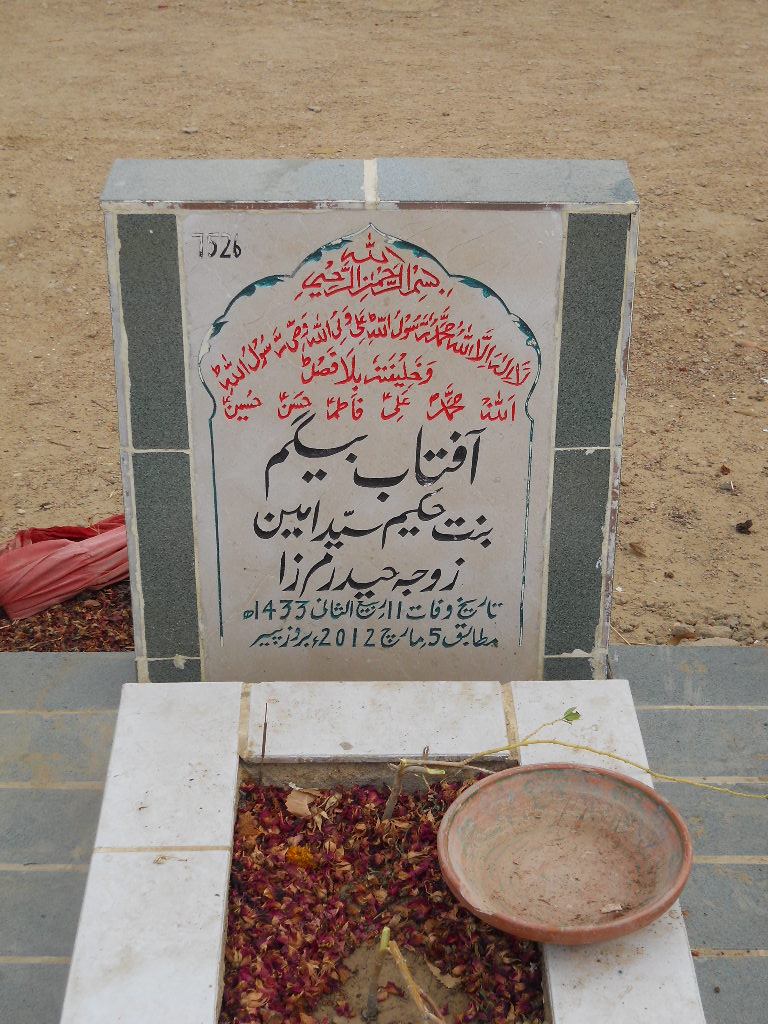 7526
اللہ
بسم اللہ الرحمن الرحیم
لا الہ الا اللہ محمد رسول اللہ علی ولی اللہ وصی رسول اللہ
وخلیفتہ بلا فصل
اللہ محمد علی فاطمہ حسن حسین
آفتاب بیگم
بنت حکیم سید امین
زوجہ حیدر مرزا
تاریخ وفات 11 ربیع الثانی 1433ھ
مطابق 5 مارچ 2012ء بروز پیر